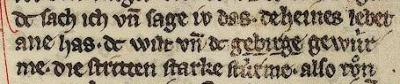 dc sach ich vn̄ sage iv das. deheines leber
ane has. dc wilt vn̄ dc gebirge gewúr
me. die striten starke stúrme. also ron̄